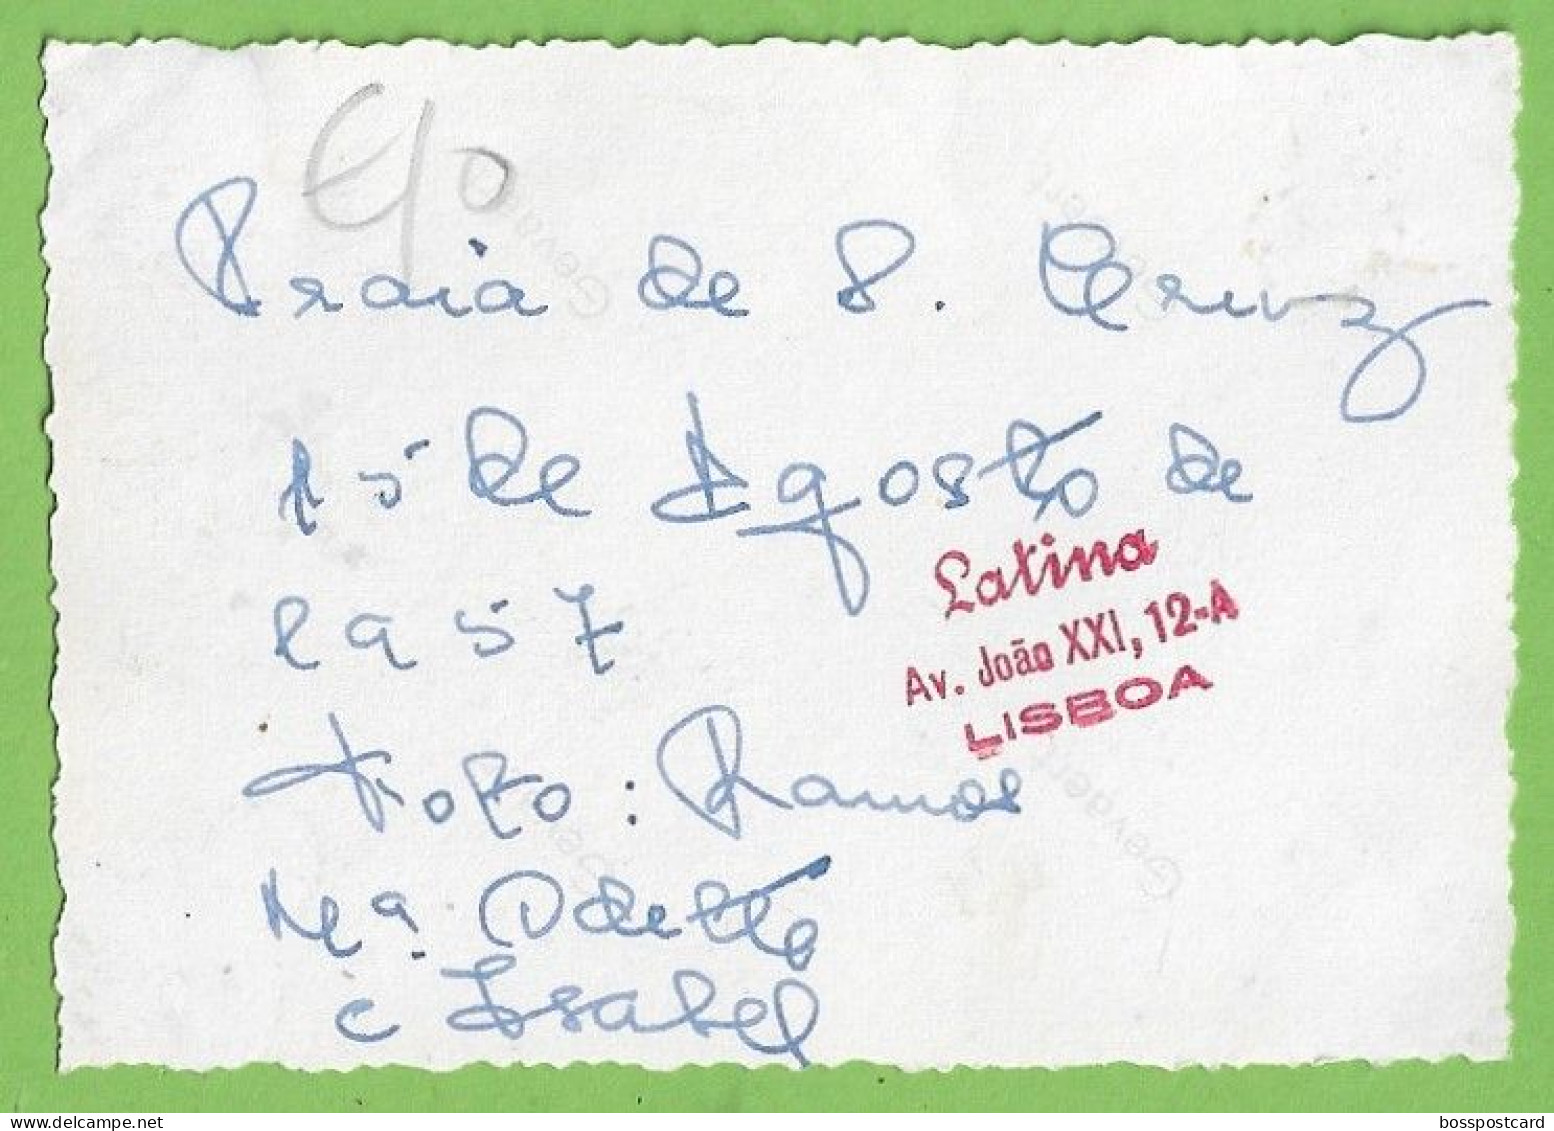 Praia de S. Cruz
15 de Agosto de
1957
Latina
Av. João XXI, 12-A
LISBOA
Foto: Ramos
Mª. Odette
e Isabel
Gevaert
Gevaert
Gevaert
Gevaert
bosspostcard